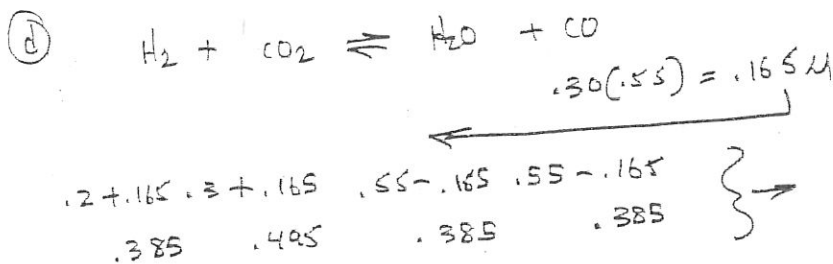 (d) H2 + CO2 ⇌ H2O + CO
.30(.55) = .165 M
.2+.165 .3+.165 .55-.165 .55-.165
.385 .495 .385 .385